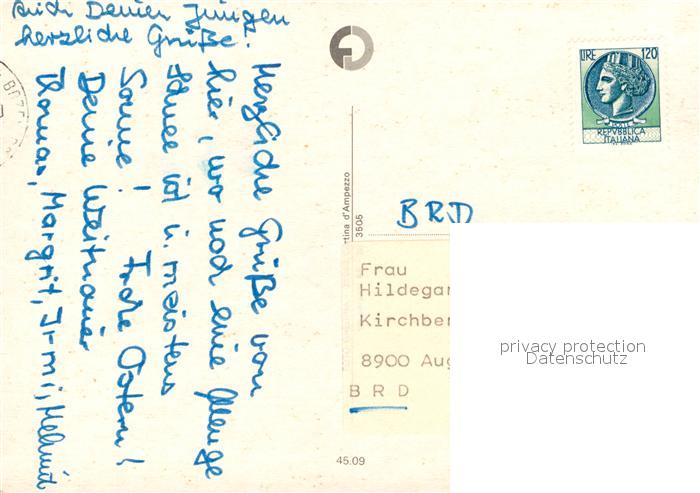 Auch Deinen Jungen
herzliche Grüße.
Herzliche Grüße von
hier, wo noch eine Menge
Schnee ist u. meistens
Sonne! Frohe Ostern!
Deine
Thomas, Margrit, Irmi, Helmut
LIRE 120
REPVBBLICA
ITALIANA
rtina d'Ampezzo
3505
BRD
Frau
Hildegar
Kirchber
8900 Aug
B R D
privacy protection
Datenschutz
45.09